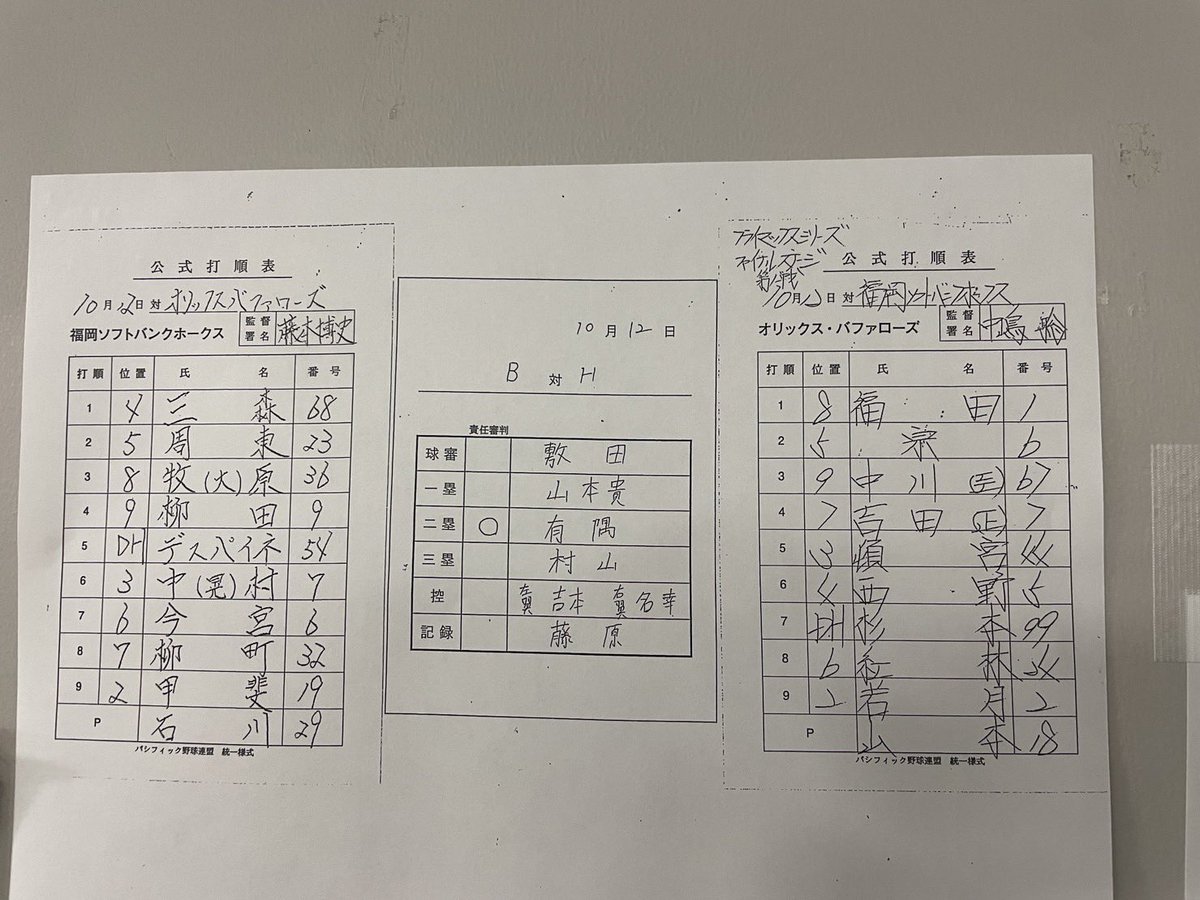 公式打順表
10月12日 対 オリックスバファローズ
福岡ソフトバンクホークス 監督署名 藤本博史
打順 位置 氏名 番号
1 4 三森 68
2 5 周東 23
3 8 牧(大)原 36
4 9 柳田 9
5 DH デスパイネ 54
6 3 中(晃)村 7
7 6 今宮 6
8 7 柳町 32
9 2 甲斐 19
P 石川 29
パシフィック野球連盟 統一様式
10月12日
B 対 H
責任審判
球審 敷田
一塁 山本貴
二塁 ○ 有隅
三塁 村山
控 吉本 名幸
記録 藤原
クライマックスシリーズ
ファイナルステージ
公式打順表
10月12日 対 福岡ソフトバンクホークス
オリックス・バファローズ 監督署名 中嶋
打順 位置 氏名 番号
1 8 福田 1
2 5 宗 6
3 9 中川(圭) 67
4 7 吉田(正) 7
5 3 頓宮 44
6 4 西野 5
7 DH 杉本 99
8 6 紅林 24
9 2 若月 2
P 山本 18
パシフィック野球連盟 統一様式